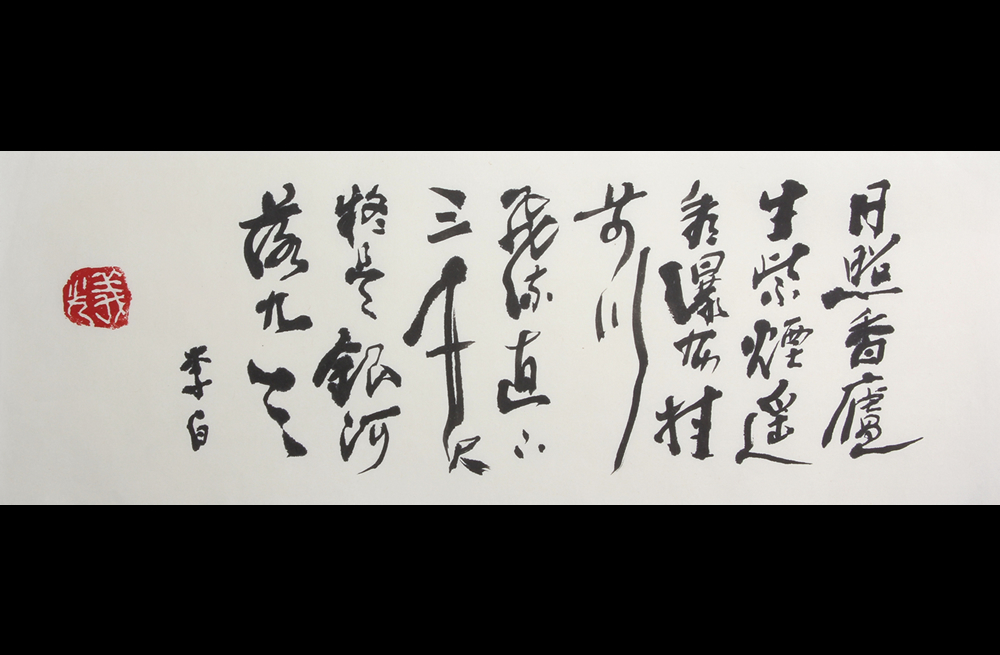 日照香廬
生紫煙遙
看瀑布挂
前川
飛流直下
三千尺
疑是銀河
落九天
李白